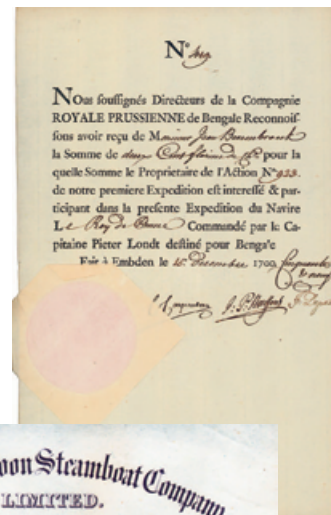 No
NOus soussignés Directeurs de la Compagnie
ROYALE PRUSSIENNE de Bengale Reconnois-
sons avoir reçu de Monsieur Jean
la Somme de deux Cent florins de pour la
quelle Somme le Proprietaire de l'Action No 933.
de notre premiere Expedition est interessé & par-
ticipant dans la presente Expedition du Navire
Le Roy de Commandé par le Ca-
pitaine Pieter Londt destiné pour Bengale
Fait à Embden le 16 Decembre 1700, Cinquante
& neuf
oon Steamboat Company
LIMITED.